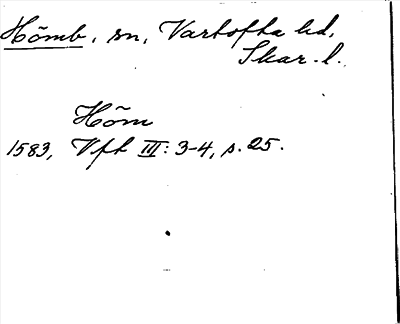 Hömb, sn, Vartofta hd,
Skar. l.
Höm
1583, Vft III: 3-4, s. 25.